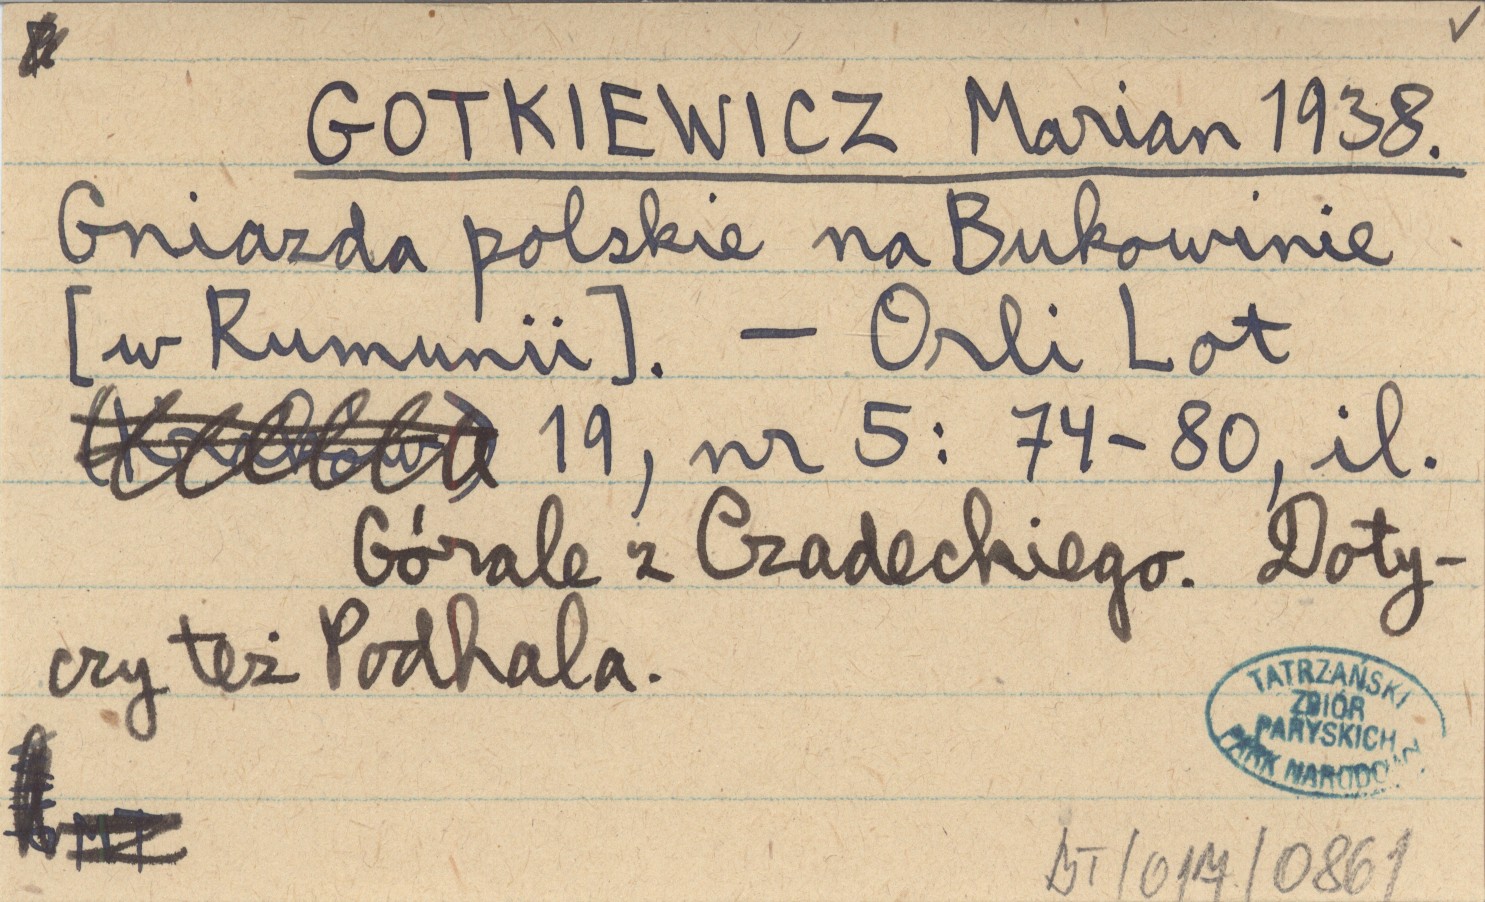 GOTKIEWICZ Marian 1938.
Gniazda polskie na Bukowinie
[w Rumunii]. — Orli Lot
19, nr 5: 74-80, il.
Górale z Czadeckiego. Doty-
czy też Podhala.
TATRZAŃSKI
ZBIÓR
PARYSKICH
PARK NARODOWY
MT
BT/017/0861